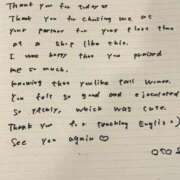 Thank you for today☺
Thank you for choosing me as
your partner for your first time
at a shop like this.
I was happy that you praised
me so much,
knowing that you like tall women.
You felt so good and ejaculated
so quickly, which was cute.
Thank you for teaching English♪)
See you again ♡